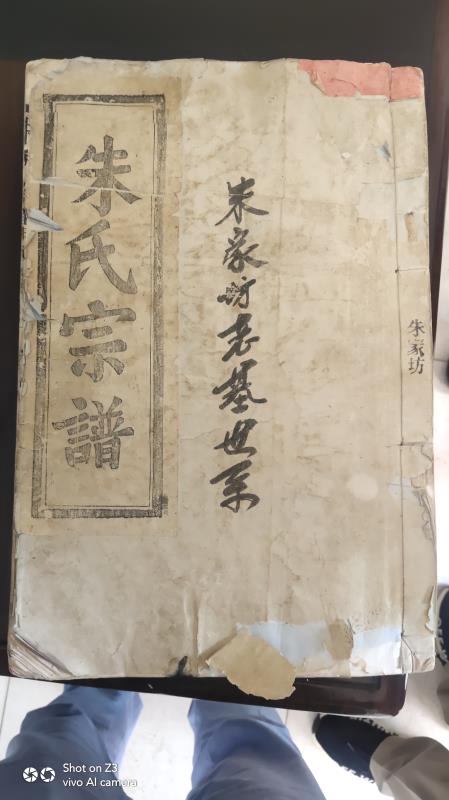 朱氏宗譜
朱家坊老基世系
朱家坊
Shot on Z3
vivo AI camera